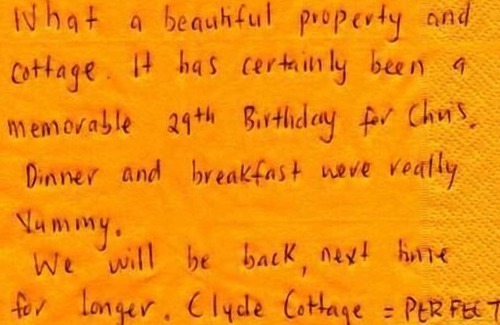 What a beautiful property and
cottage. It has certainly been a
memorable 29th Birthday for Chris.
Dinner and breakfast were really
Yummy.
We will be back, next time
for longer. Clyde Cottage = PERFECT